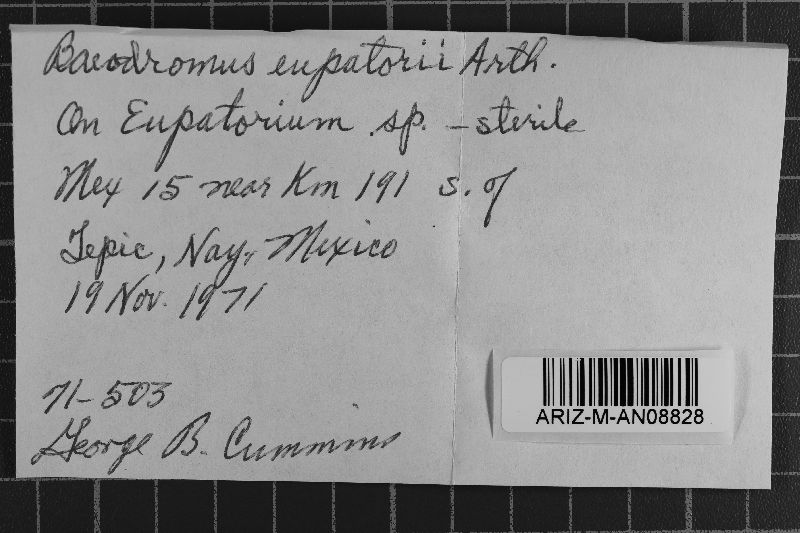 Baeodromus eupatorii Arth.
On Eupatorium sp. - sterile
Mex 15 near Km 191 S. of
Tepic, Nay, Mexico
19 Nov. 1971
71-503
George B. Cummins
ARIZ-M-AN08828